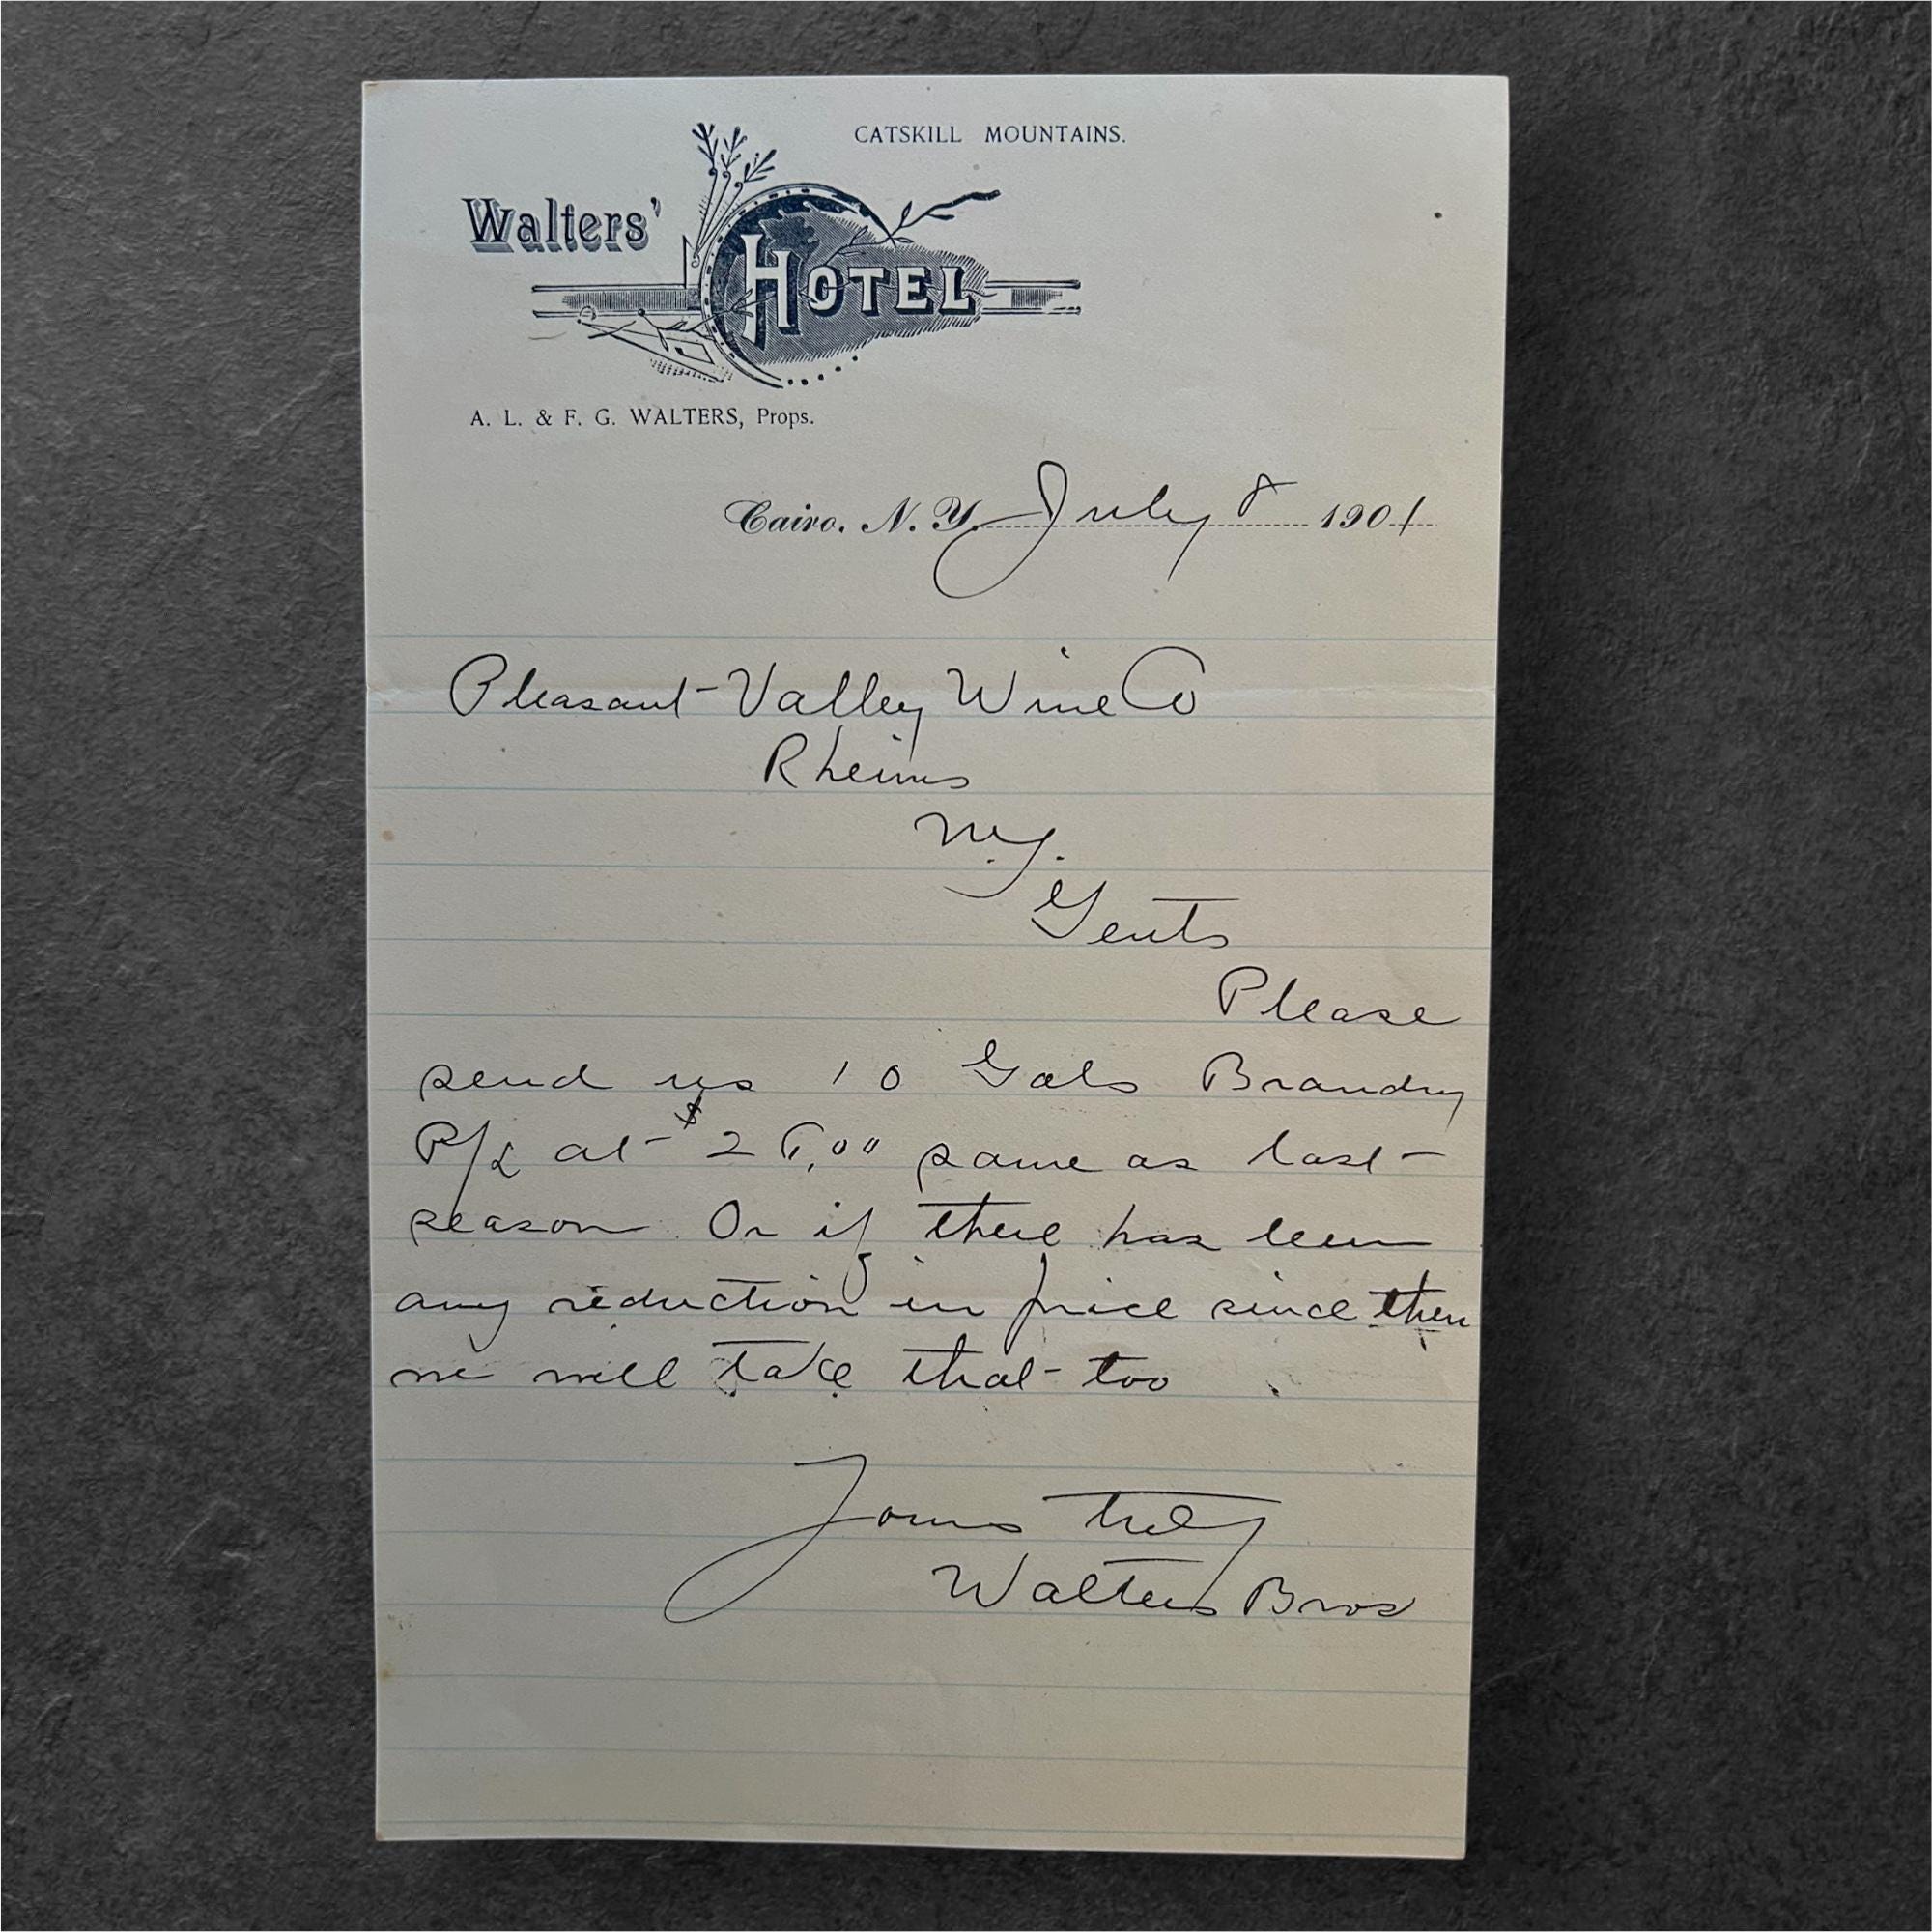 CATSKILL MOUNTAINS.
Walters'
HOTEL
A. L. & F. G. WALTERS, Props.
Cairo, N. Y. July 8 1901
Pleasant Valley Wine Co
Rheims
N.Y.
Gents
Please
send us 10 Gals Brandy
at same as last
season Or if there has been
any reduction in price since then
we will take that too
Yours truly
Walters Bros